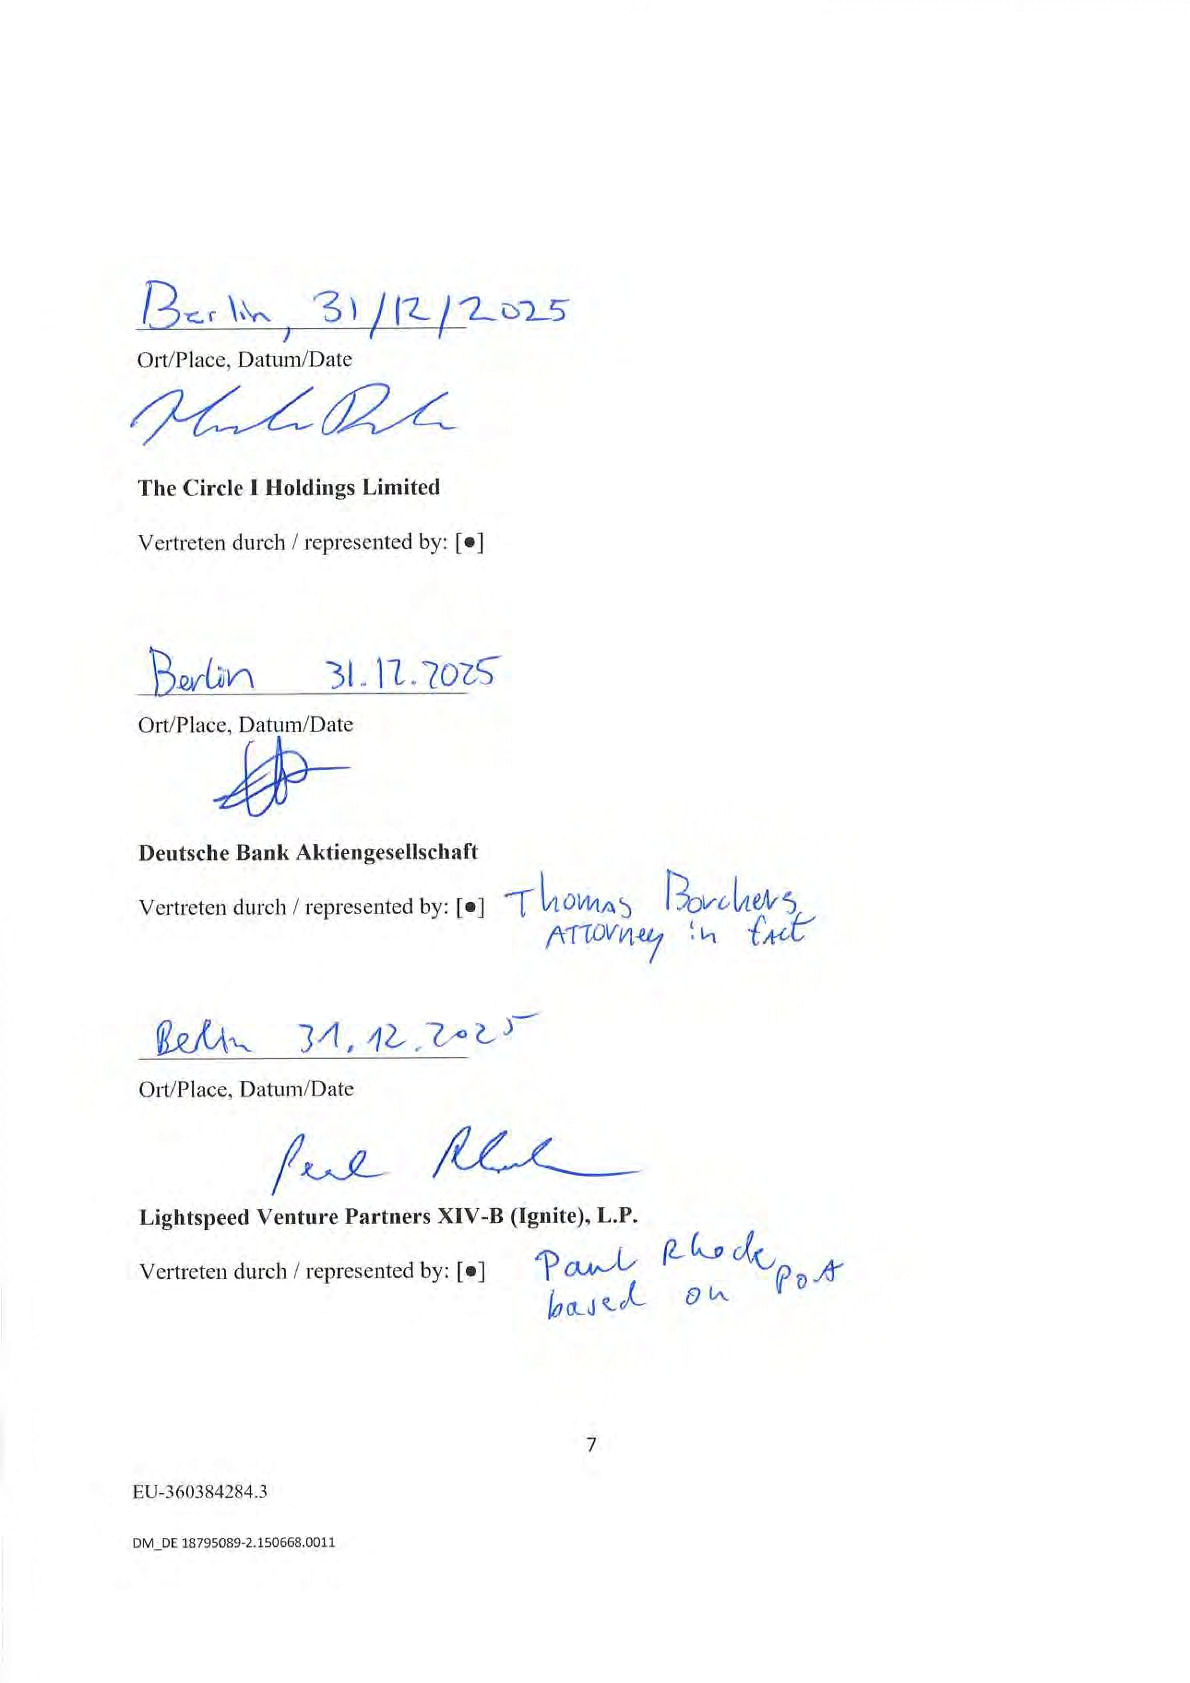 Berlin, 31/12/2025
Ort/Place, Datum/Date
The Circle I Holdings Limited
Vertreten durch / represented by: [●]
Berlin 31.12.2025
Ort/Place, Datum/Date
Deutsche Bank Aktiengesellschaft
Vertreten durch / represented by: [●] Thomas Borchers,
Attorney in fact
Berlin 31.12.2025
Ort/Place, Datum/Date
Paul
Lightspeed Venture Partners XIV-B (Ignite), L.P.
Vertreten durch / represented by: [●] Paul Rhode
based on PoA
7
EU-360384284.3
DM_DE 18795089-2.150668.0011